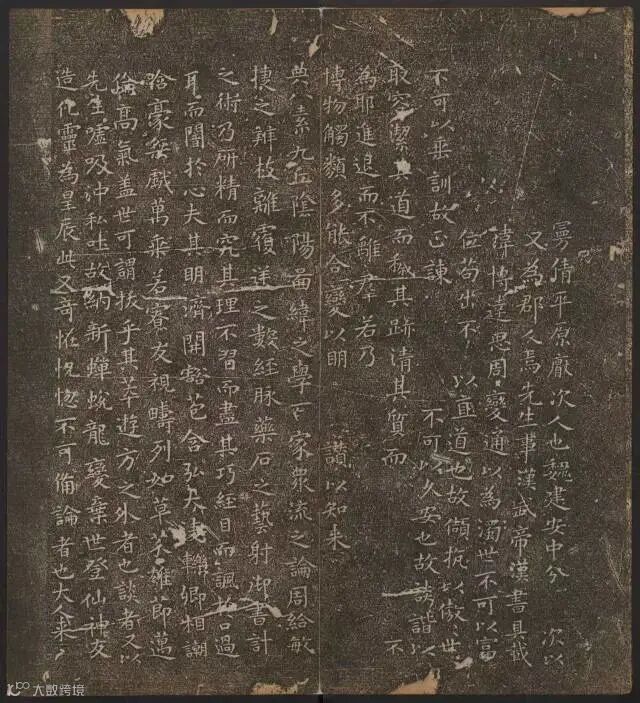 曼倩平原厭次人也魏建安中分 次以
又為郡人焉先生事漢武帝漢書具載
瑋博達思周變通以為濁世不可以富
位苟出不 以直道也故傾抗以傲世
不可以垂訓故正諫 不可以久安也故詼諧以
取容潔其道而穢其跡清其質而 不
為耶進退而不離群若乃
博物觸類多能合變以明 讚以知來
典八索九丘陰陽圖緯之學百家眾流之論周給敏
捷之辨枝離覆逆之數經脉藥石之藝射御書計
之術乃研精而究其理不習而盡其巧經目而諷於口過
耳而闇於心夫其明濟開豁苞含弘大凌轢卿相謿
哈豪桀戲萬乘若寮友視疇列如草芥雄節邁
倫高氣蓋世可謂拔乎其萃遊方之外者也談者又以
先生噓吸沖和吐故納新蟬蛻龍變棄世登仙神友
造化靈為星辰此又奇怪恍惚不可備論者也大人來
大数跨境